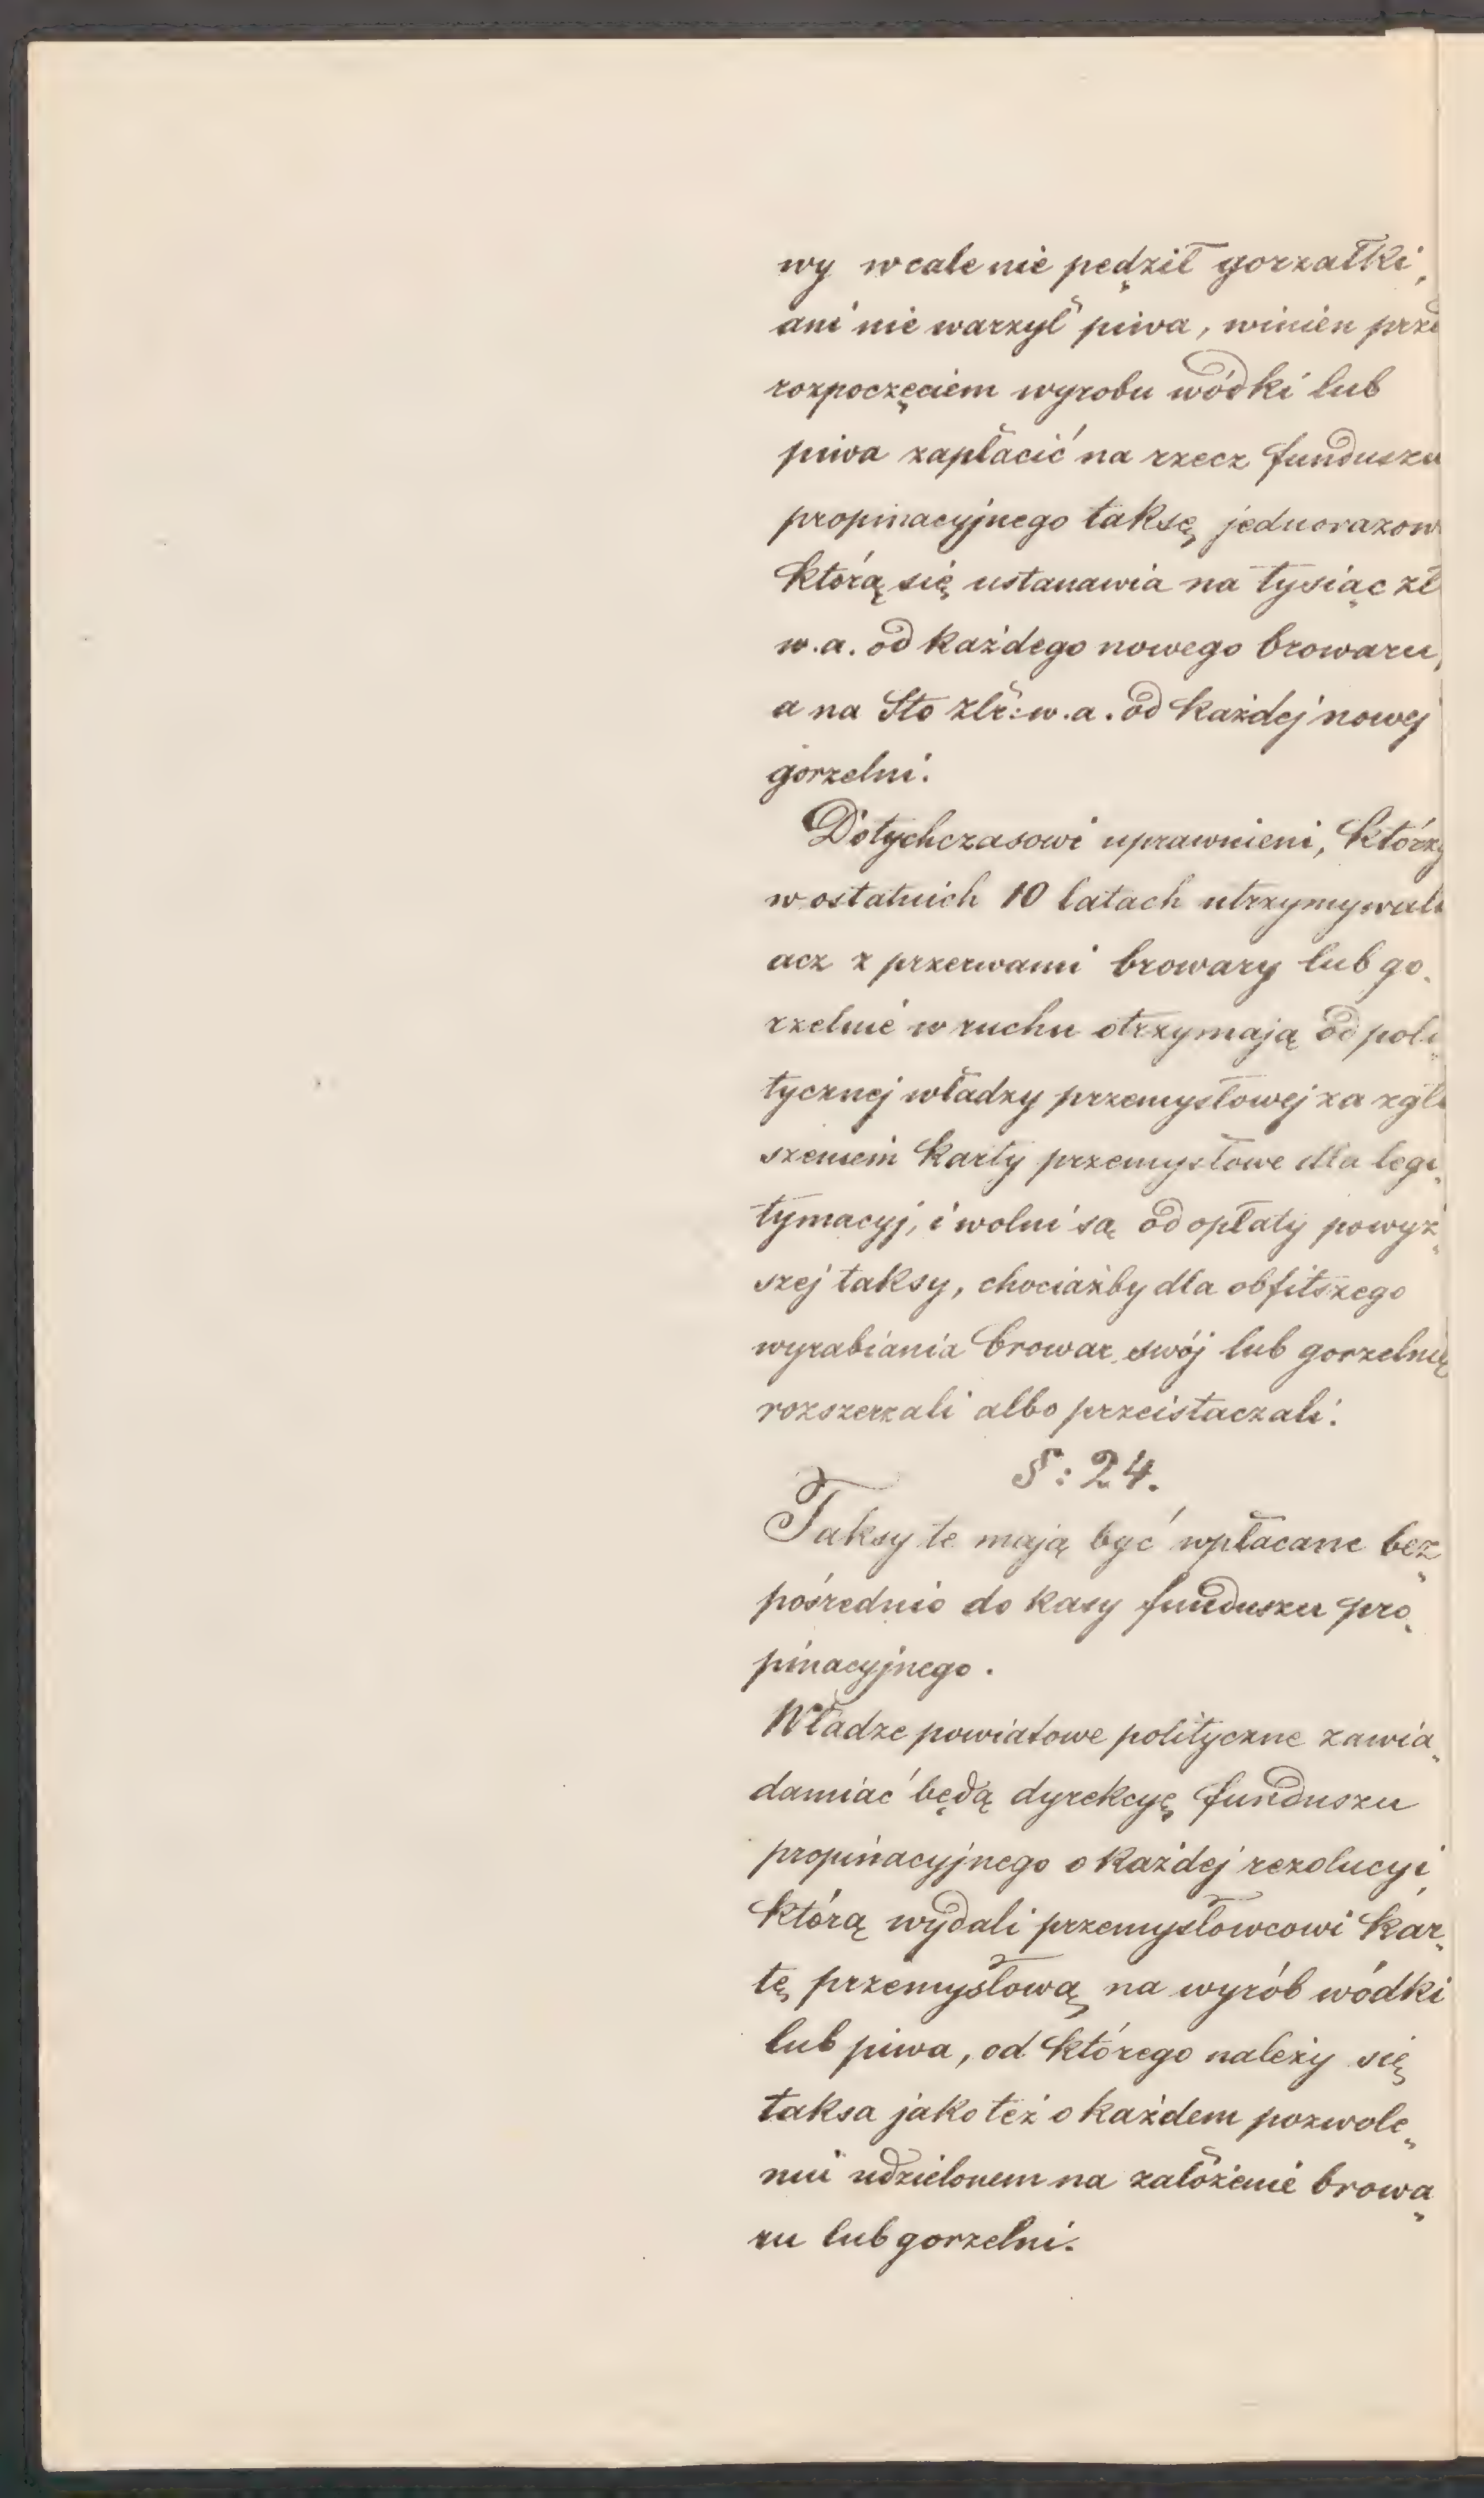 wy wcale nie pędził gorzałki,
ani nie warzył piwa, winien przed
rozpoczęciem wyrobu wódki lub
piwa zapłacić na rzecz funduszu
propinacyjnego taksę jednorazow
którą się ustanawia na tysiąc zł
w.a. od każdego nowego browaru,
a na Sto złr: w.a. od każdej nowej
gorzelni.
Dotychczasowi uprawnieni, którzy
w ostatnich 10 latach utrzymywali
acz z przerwami browary lub go„
rzelnie w ruchu otrzymają od poli„
tycznej władzy przemysłowej za zgło
szeniem karty przemysłowe dla legi„
tymacyj, i wolni są od opłaty powyż„
szej taksy, chociażby dla obfitszego
wyrabiania browar swój lub gorzelnię
rozszerzali albo przeistaczali.
§: 24.
Taksy te mają być wpłacane bez„
pośrednio do kasy funduszu pro„
pinacyjnego.
Władze powiatowe polityczne zawia„
damiać będą dyrekcyę funduszu
propinacyjnego o każdej rezolucyi,
którą wydali przemysłowcowi kar„
tę przemysłową na wyrób wódki
lub piwa, od którego należy się
taksa jako też o każdem pozwole„
niu udzielonem na założenie browa„
ru lub gorzelni.